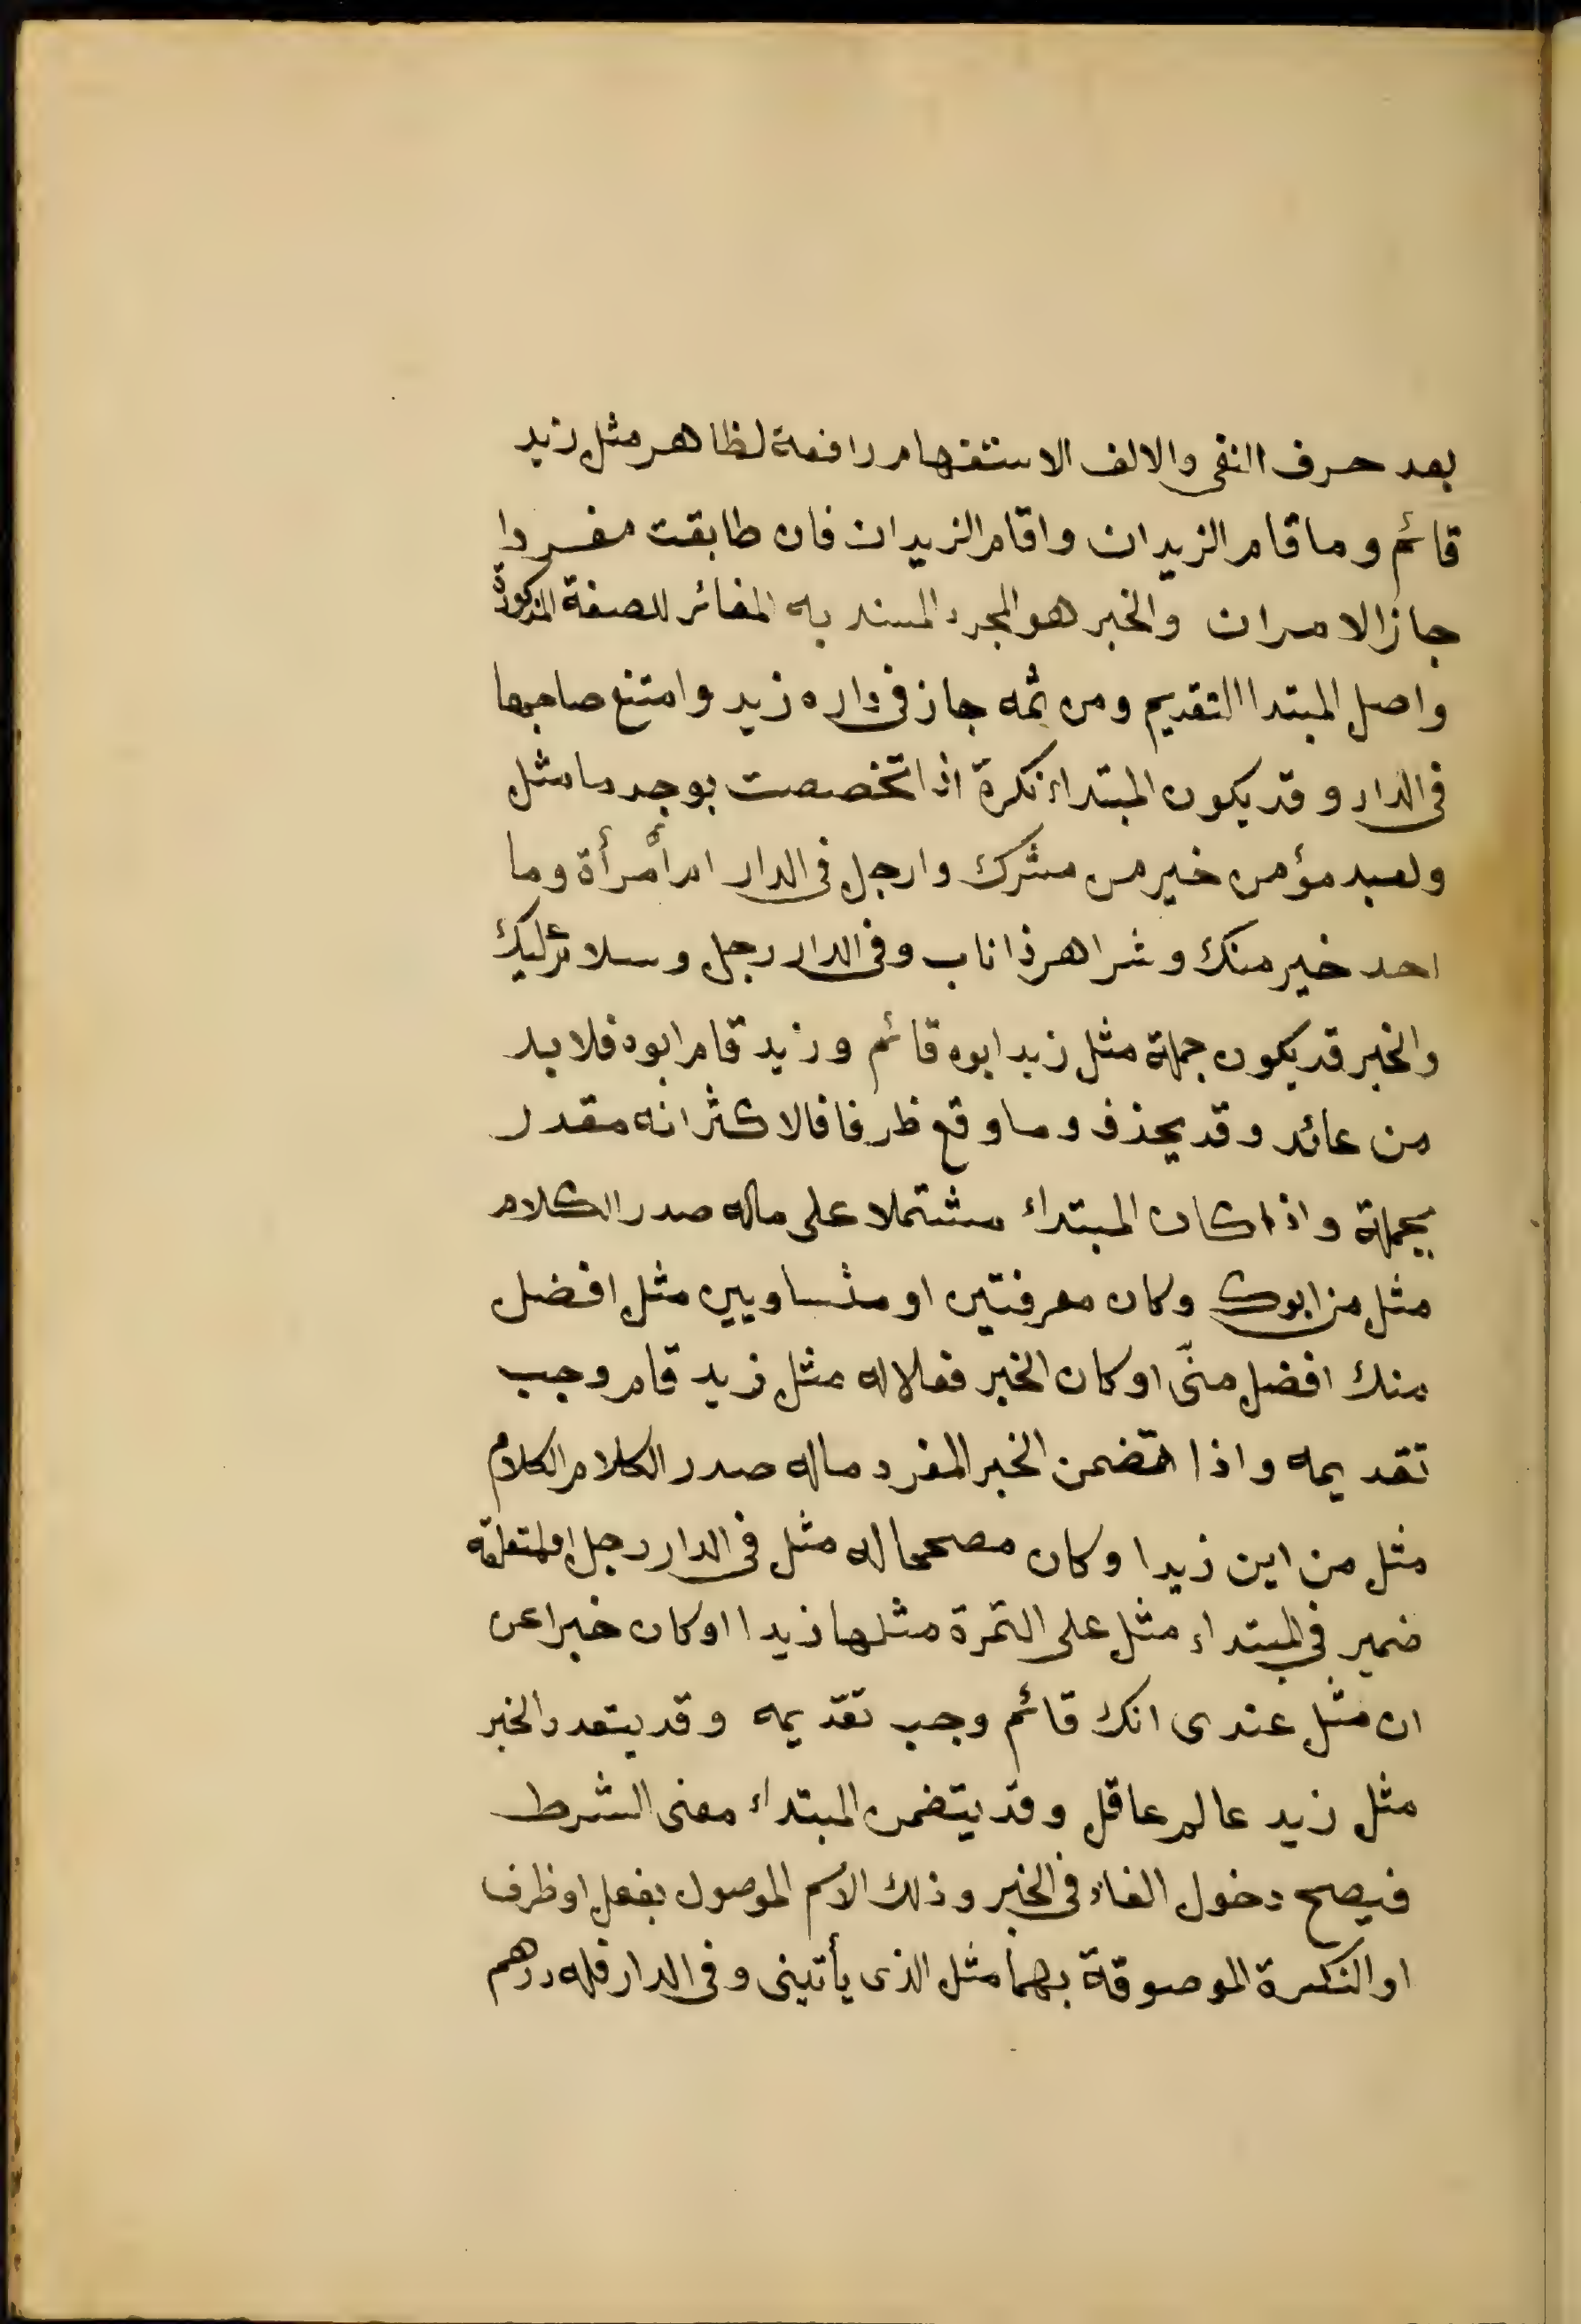 بعد حرف النفى والالف الاستفهام رافعة لظاهر مثل زيد
قائم وما قام الزيدان واقام الزيدان فان طابقت مفردا
جاز الامران والخبر هو المجرد المسند به المغائر للصفة المذكورة
واصل المبتدا التقديم ومن ثمه جاز فى داره زيد وامتنع صاحبها
فى الدار وقد يكون المبتداء نكرة اذا تخصصت بوجه ما مثل
ولعبد مؤمن خير من مشرك وارجل فى الدار ام أمرأة وما
احد خير منك وشر اهر ذا ناب وفى الدار رجل وسلام عليك
والخبر قد يكون جملة مثل زيد ابوه قائم وزيد قام ابوه فلا بد
من عائد وقد يحذف وما وقع ظرفا فالاكثر انه مقدر
بجملة واذا كان المبتداء مشتملا على ماله صدر الكلام
مثل من ابوك وكان معرفتين او متساويين مثل افضل
منك افضل منّى او كان الخبر فعلا له مثل زيد قام وجب
تقديمه واذا تضمن الخبر المفرد ماله صدر الكلام الكلام
مثل من اين زيد او كان مصححا له مثل فى الدار رجل او لمتعلقه
ضمير فى المبتداء مثل على التمرة مثلها زيدا او كان خبرا عن
ان مثل عندى انك قائم وجب تقديمه وقد يتعدد الخبر
مثل زيد عالم عاقل وقد يتضمن المبتداء معنى الشرط
فيصح دخول الفاء فى الخبر وذلك الاسم الموصول بفعل او ظرف
او النكرة الموصوفة بهما مثل الذى يأتينى وفى الدار فله درهم